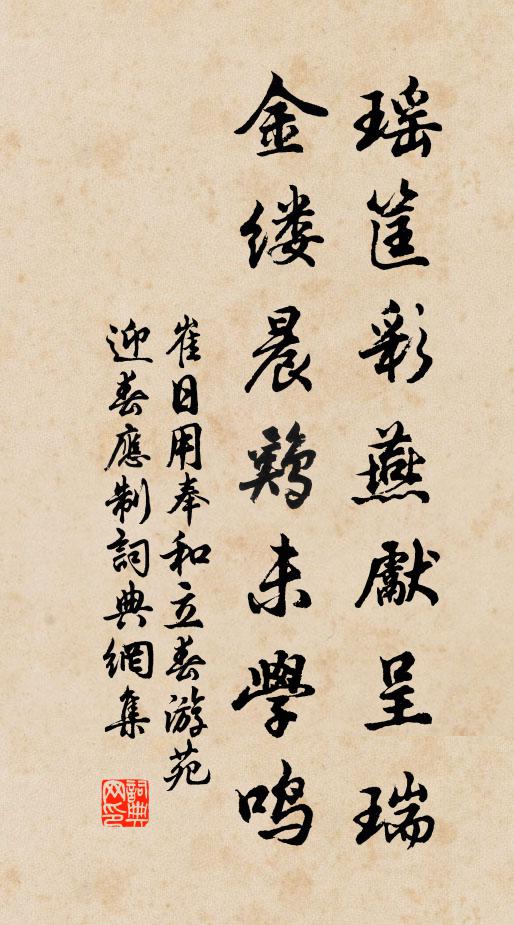 瑶筐彩燕獻呈瑞
金缕晨鷄未學鸣
崔日用奉和立春游苑
迎春應制詞典網集
詞典
网印